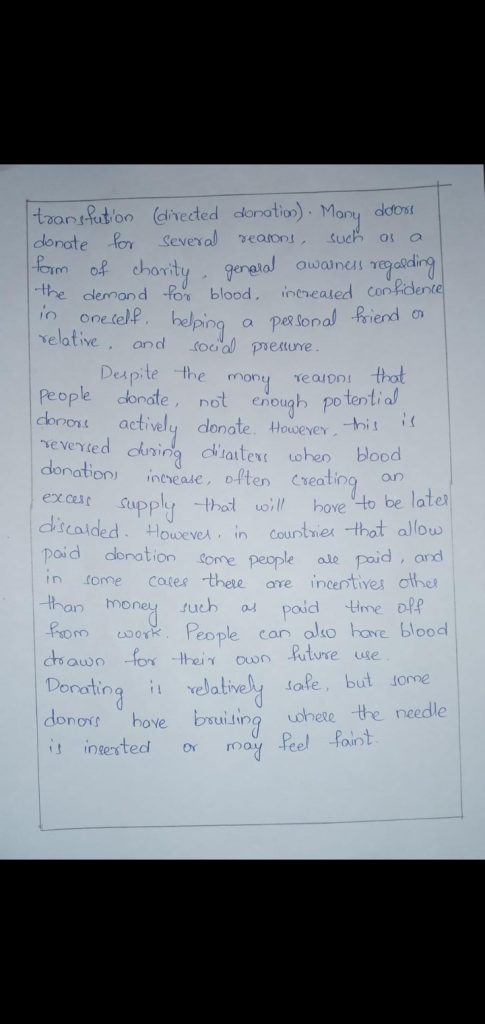 transfution (directed donation). Many donors
donate for several reasons, such as a
form of charity, general awarness regarding
the demand for blood, increased confidence
in oneself, helping a personal friend or
relative, and social pressure.
Despite the many reasons that
people donate, not enough potential
donors actively donate. However, this is
reversed during disasters when blood
donations increase, often creating an
excess supply that will have to be later
discarded. However, in countries that allow
paid donation some people are paid, and
in some cases there are incentives other
than money such as paid time off
from work. People can also have blood
drawn for their own future use.
Donating is relatively safe, but some
donors have bruising where the needle
is inserted or may feel faint.